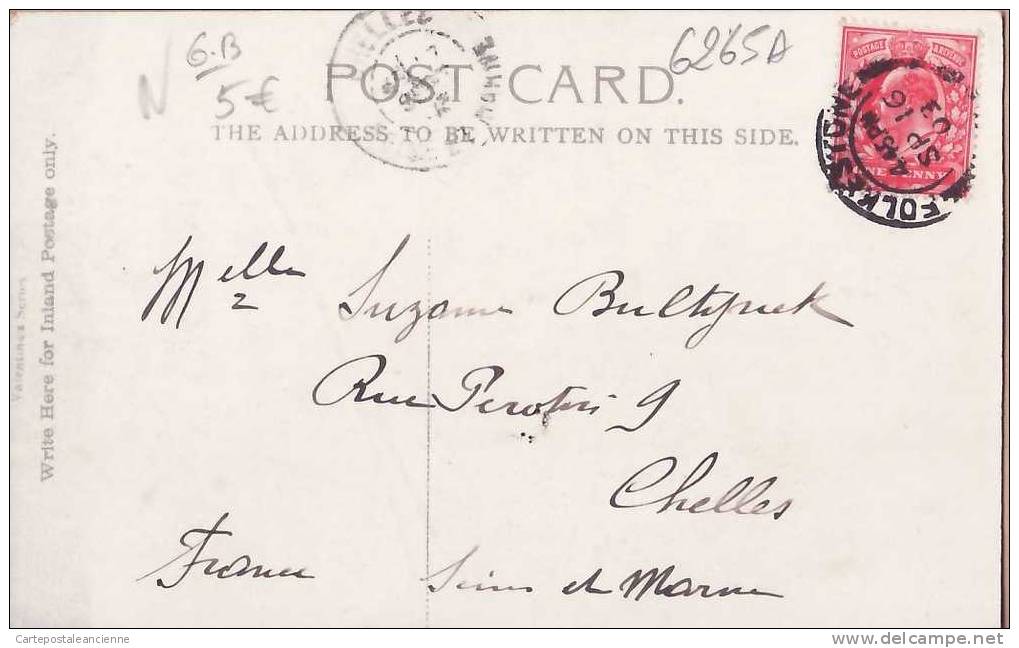 N
G.B
5€
6265A
POST CARD.
THE ADDRESS TO BE WRITTEN ON THIS SIDE.
POSTAGE & REVENUE
ONE PENNY
FOLKESTONE
4.45PM
SP 16
03
Valentines Series
Write Here for Inland Postage only.
Melle
Suzanne
Rue Perotin 9
Chelles
France Seine et Marne
Cartepostaleancienne
www.delcampe.net